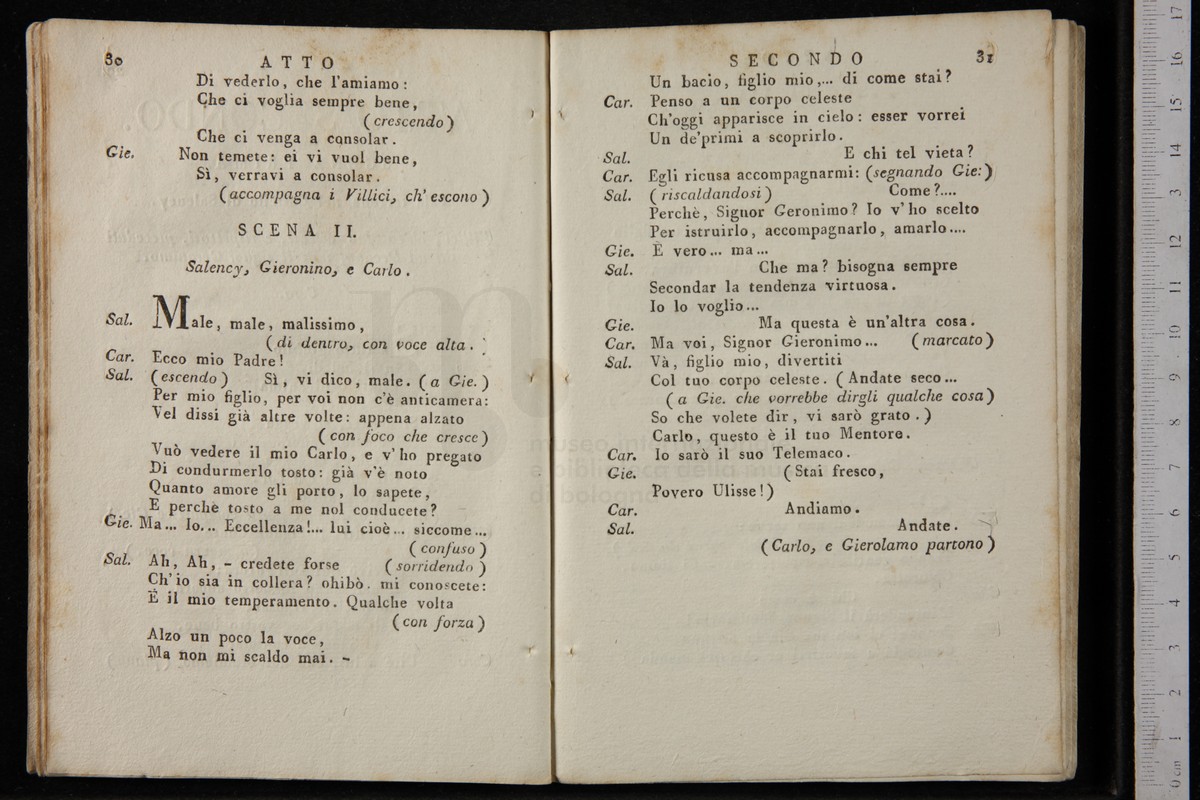 80 ATTO
Di vederlo, che l'amiamo:
Che ci voglia sempre bene,
(crescendo)
Che ci venga a consolar.
Gie. Non temete: ei vi vuol bene,
Sì, verravi a consolar.
(accompagna i Villici, ch'escono)
SCENA II.
Salency, Gieronino, e Carlo.
Sal. Male, male, malissimo,
(di dentro, con voce alta.
Car. Ecco mio Padre!
Sal. (escendo) Sì, vi dico, male. (a Gie.)
Per mio figlio, per voi non c'è anticamera:
Vel dissi già altre volte: appena alzato
(con foco che cresce)
Vuò vedere il mio Carlo, e v'ho pregato
Di condurmerlo tosto: già v'è noto
Quanto amore gli porto, lo sapete,
E perchè tosto a me nol conducete?
Gie. Ma... Io... Eccellenza!... lui cioè... siccome...
(confuso)
Sal. Ah, Ah, - credete forse (sorridendo)
Ch'io sia in collera? ohibò. mi conoscete:
È il mio temperamento. Qualche volta
(con forza)
Alzo un poco la voce,
Ma non mi scaldo mai. -
SECONDO 31
Un bacio, figlio mio,... di come stai?
Car. Penso a un corpo celeste
Ch'oggi apparisce in cielo: esser vorrei
Un de'primi a scoprirlo.
Sal. E chi tel vieta?
Car. Egli ricusa accompagnarmi: (segnando Gie:)
Sal. (riscaldandosi) Come?....
Perchè, Signor Geronimo? Io v'ho scelto
Per istruirlo, accompagnarlo, amarlo....
Gie. È vero... ma...
Sal. Che ma? bisogna sempre
Secondar la tendenza virtuosa.
Io lo voglio...
Gie. Ma questa è un'altra cosa.
Car. Ma voi, Signor Gieronimo... (marcato)
Sal. Và, figlio mio, divertiti
Col tuo corpo celeste. (Andate seco...
(a Gie. che vorrebbe dirgli qualche cosa)
So che volete dir, vi sarò grato.)
Carlo, questo è il tuo Mentore.
Car. Io sarò il suo Telemaco.
Gie. (Stai fresco,
Povero Ulisse!)
Car. Andiamo.
Sal. Andate.
(Carlo, e Gierolamo partono)
0 cm 1 2 3 4 5 6 7 8 9 10 11 12 13 14 15 16 17